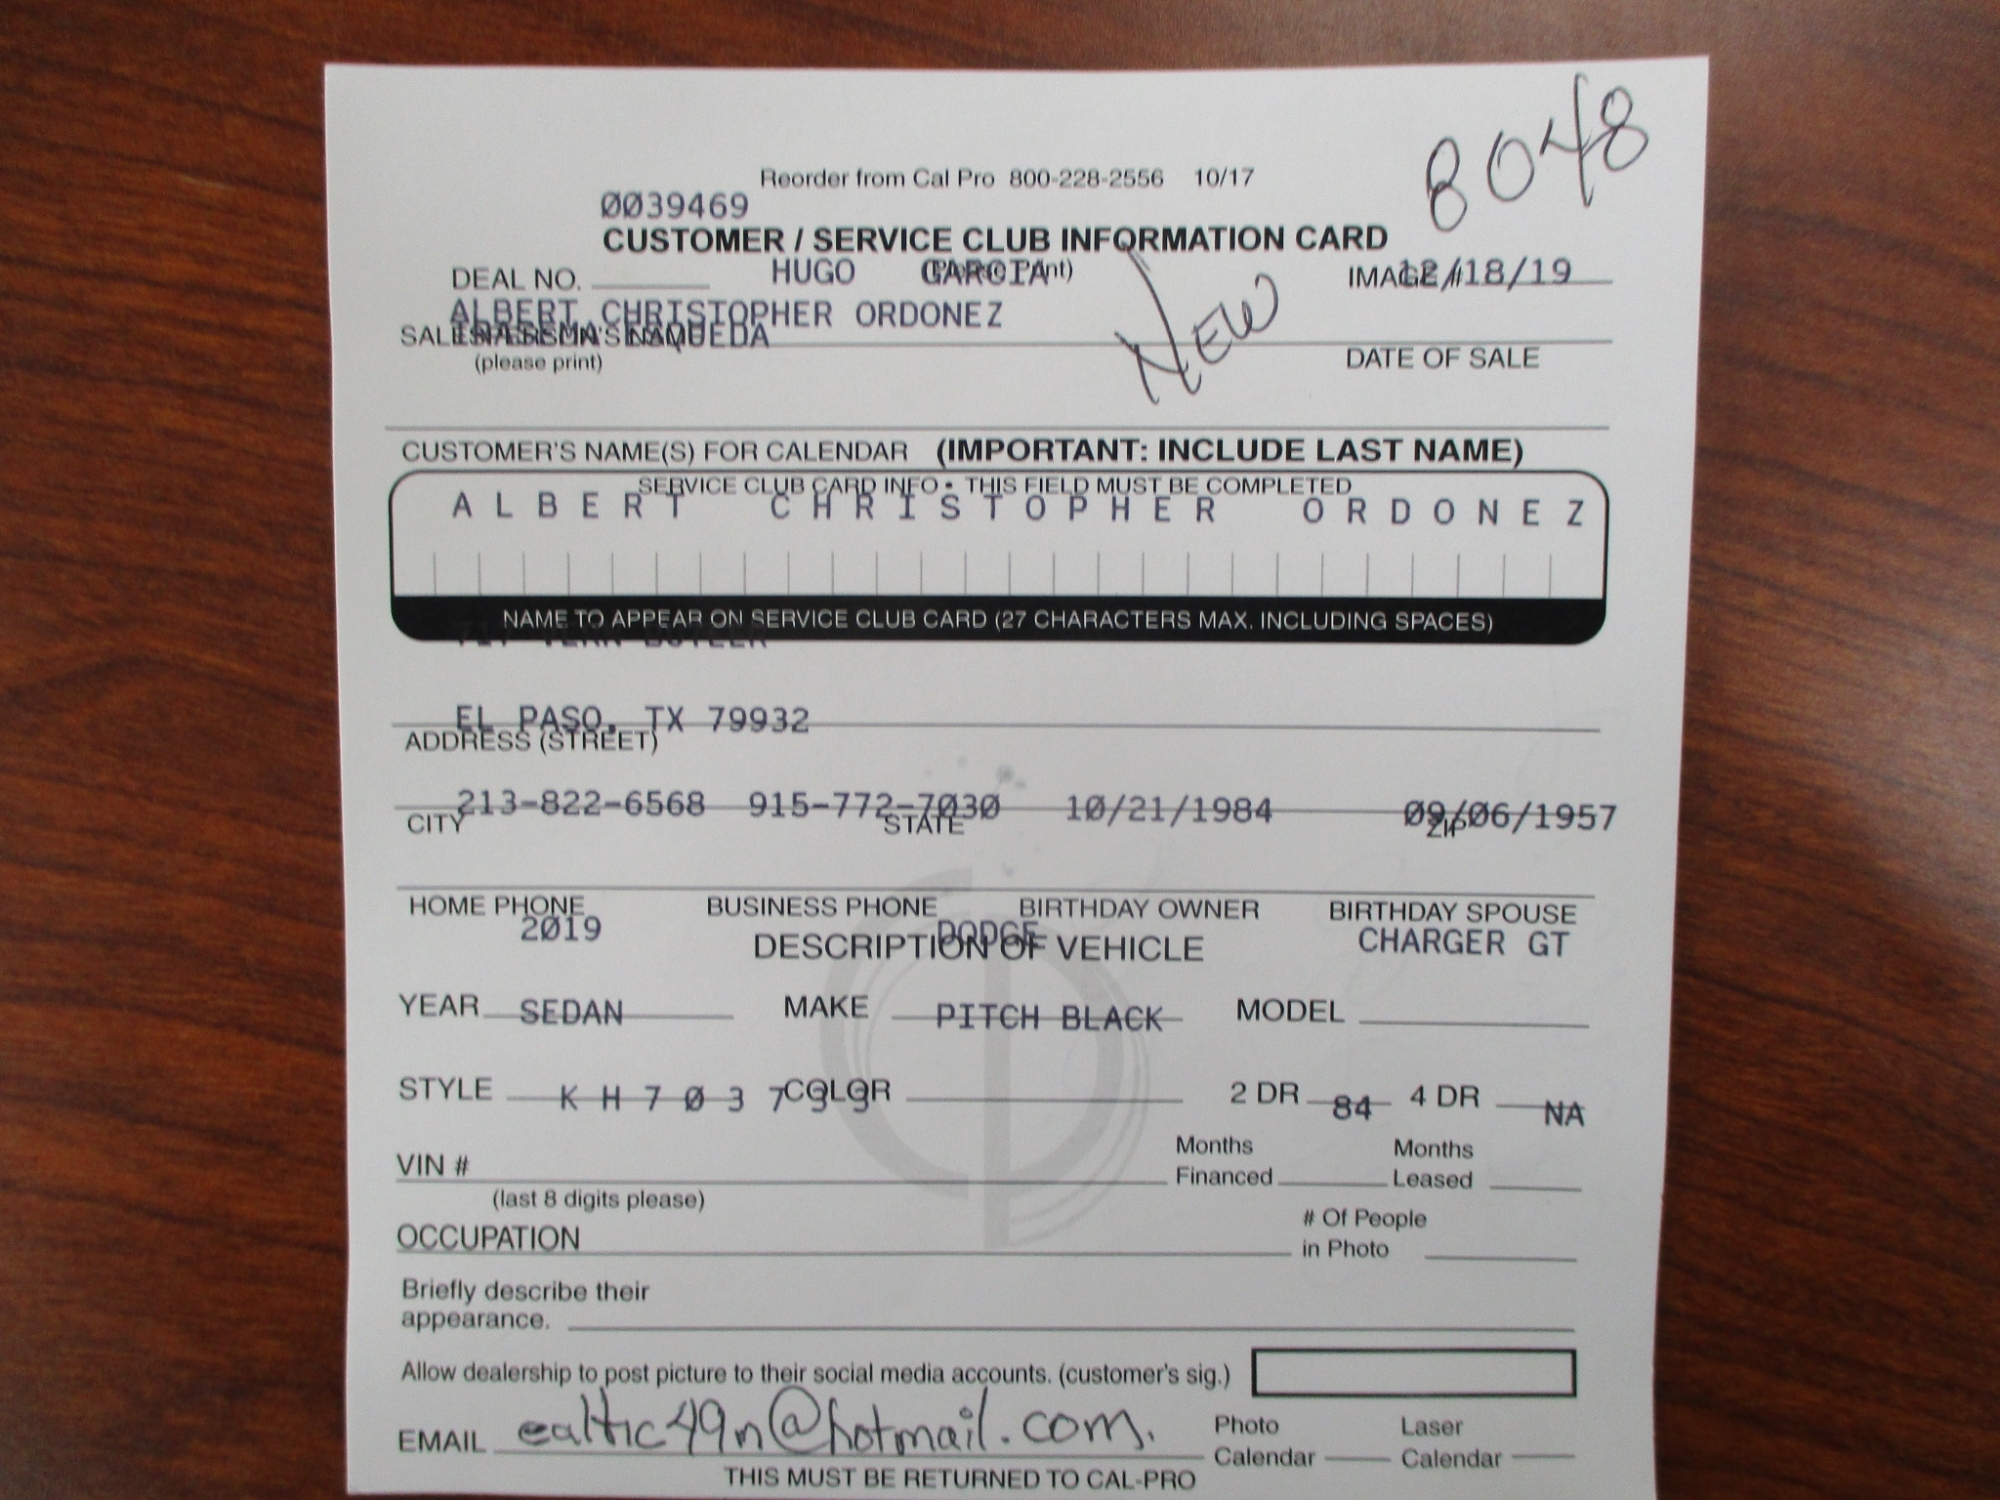 8048
Reorder from Cal Pro 800-228-2556 10/17
0039469
CUSTOMER / SERVICE CLUB INFORMATION CARD
DEAL NO. HUGO GARCIA IMAGE # 12/18/19
NEW
ALBERT CHRISTOPHER ORDONEZ
SALESPERSON'S NAME ESQUEDA
(please print) DATE OF SALE
CUSTOMER'S NAME(S) FOR CALENDAR (IMPORTANT: INCLUDE LAST NAME)
SERVICE CLUB CARD INFO • THIS FIELD MUST BE COMPLETED
ALBERT CHRISTOPHER ORDONEZ
NAME TO APPEAR ON SERVICE CLUB CARD (27 CHARACTERS MAX. INCLUDING SPACES)
EL PASO, TX 79932
ADDRESS (STREET)
213-822-6568 915-772-7030 10/21/1984 09/06/1957
CITY STATE ZIP
HOME PHONE BUSINESS PHONE BIRTHDAY OWNER BIRTHDAY SPOUSE
2019 DODGE CHARGER GT
DESCRIPTION OF VEHICLE
YEAR SEDAN MAKE PITCH BLACK MODEL
STYLE KH703799 COLOR 2 DR 84 4 DR NA
VIN # Months Financed Months Leased
(last 8 digits please)
OCCUPATION # Of People in Photo
Briefly describe their
appearance.
Allow dealership to post picture to their social media accounts. (customer's sig.)
EMAIL ealtic49n@hotmail.com. Photo Calendar Laser Calendar
THIS MUST BE RETURNED TO CAL-PRO